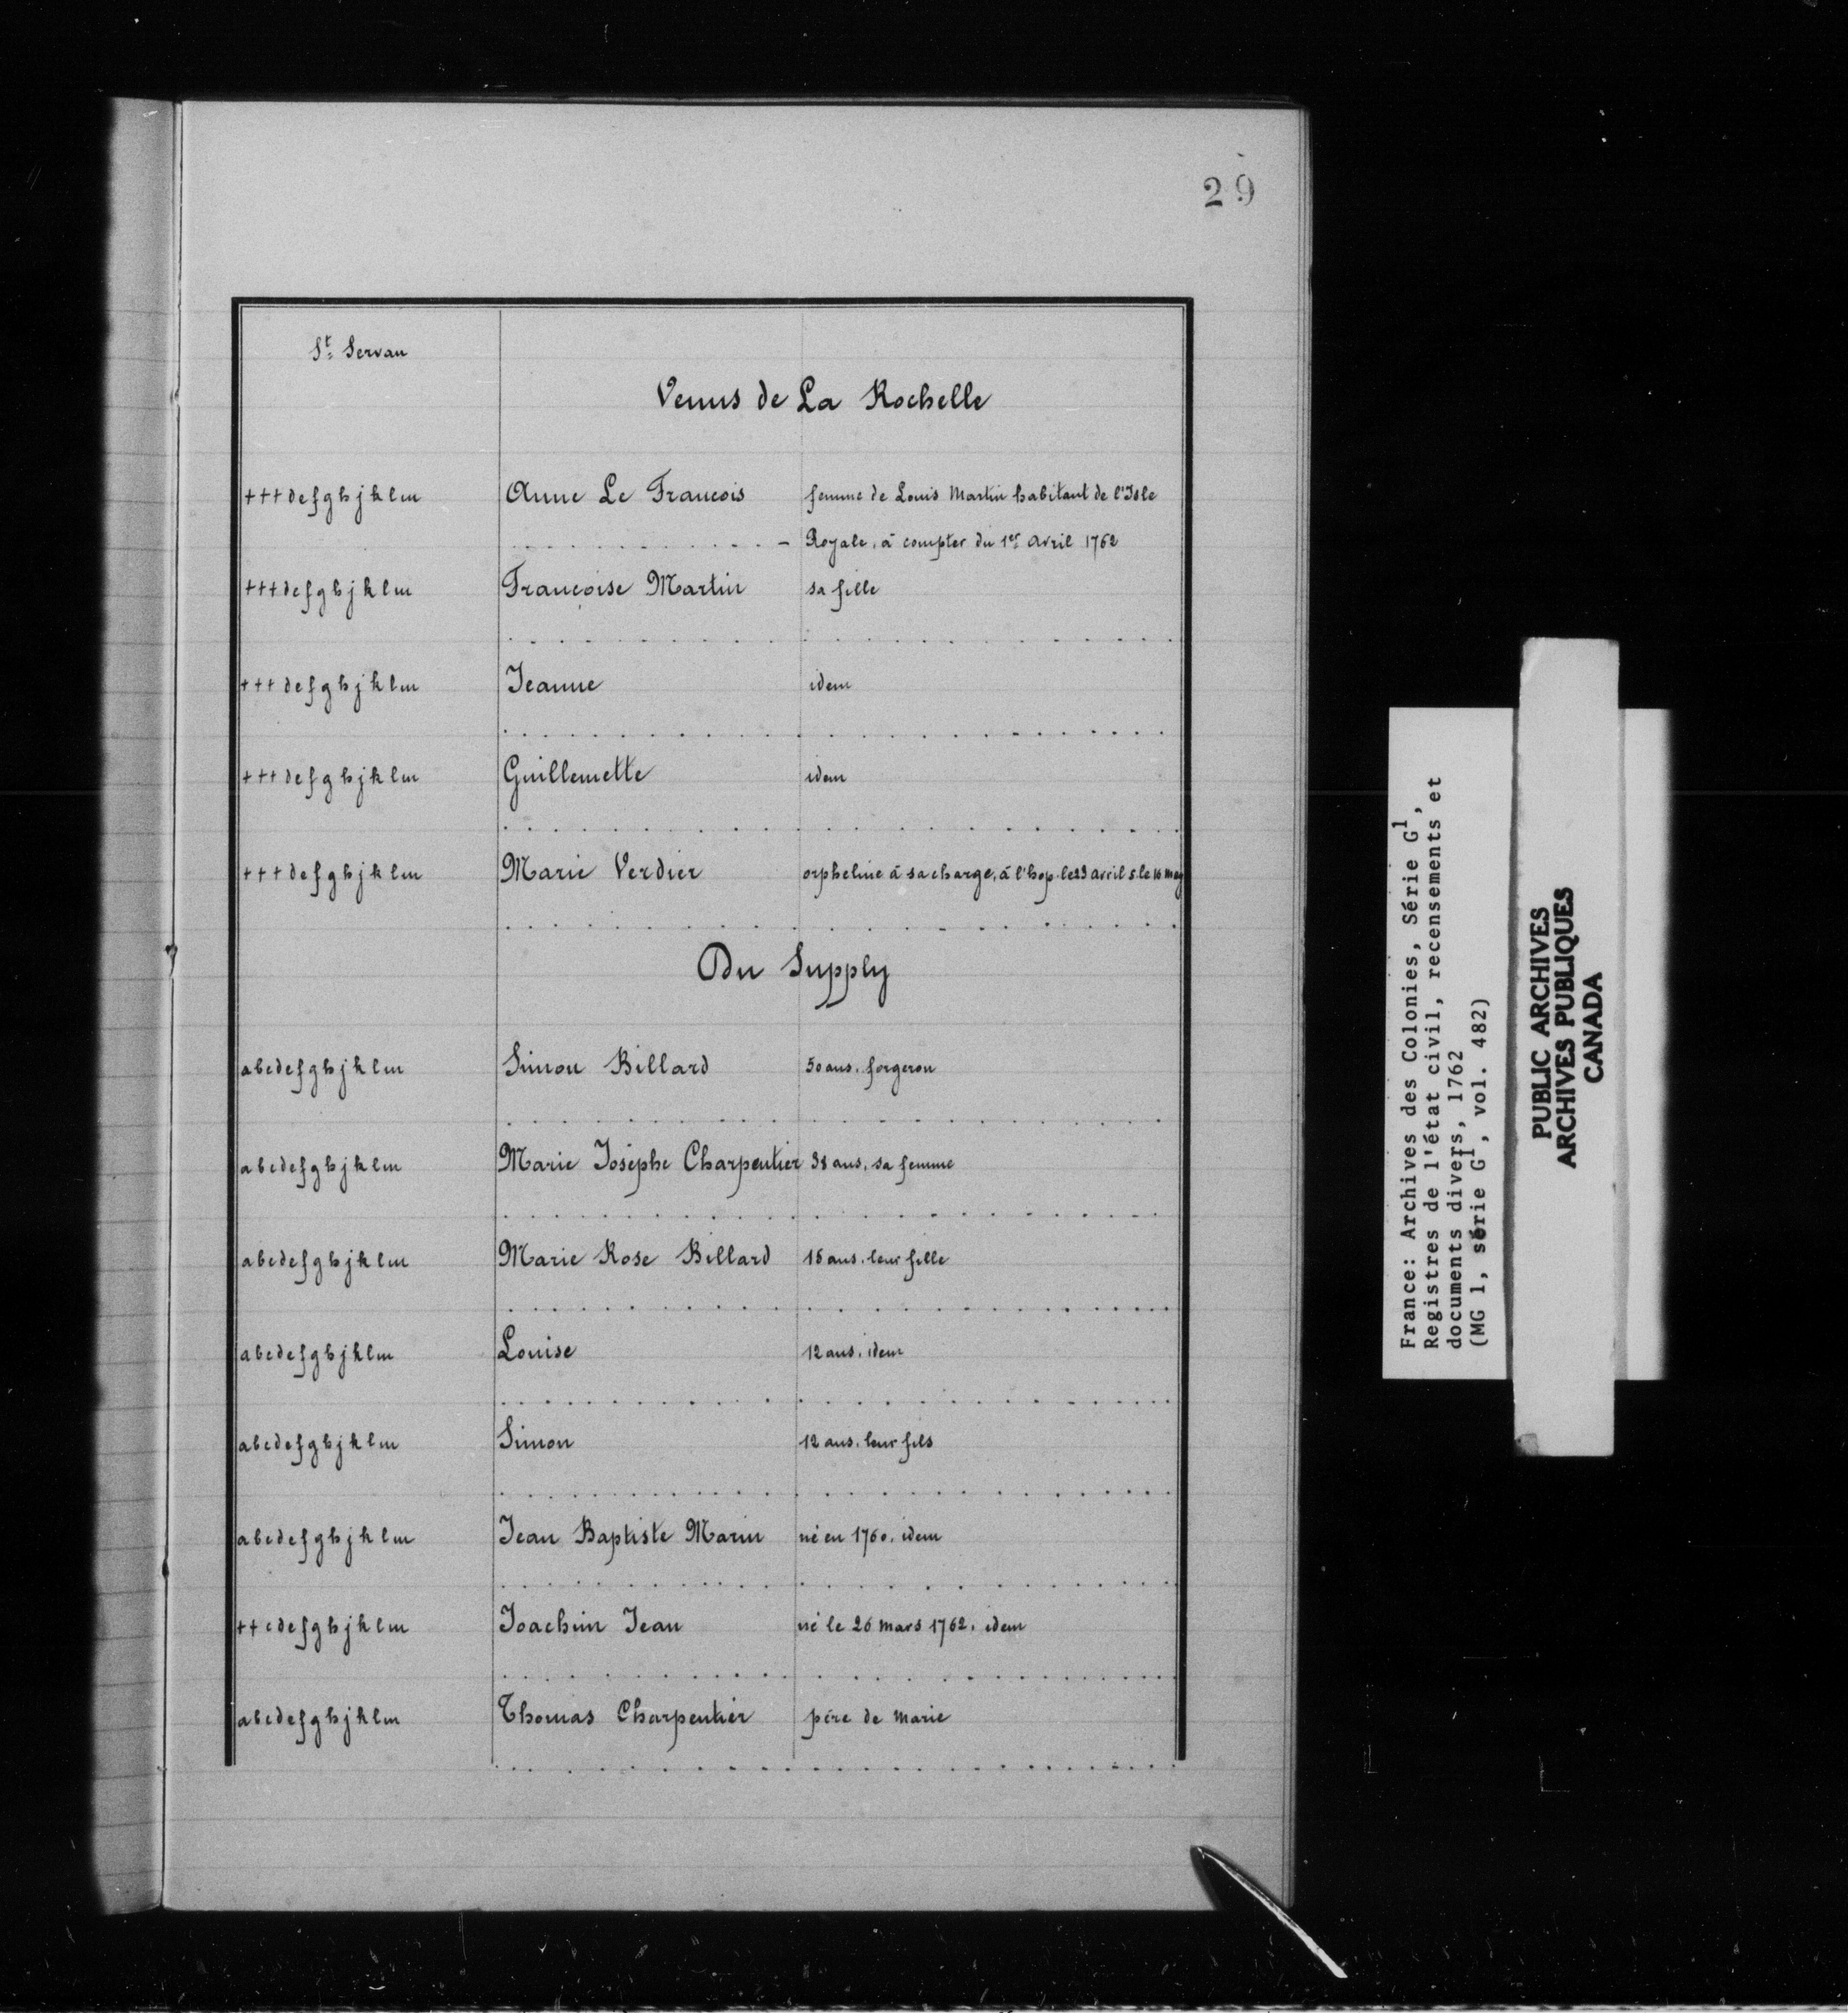 29
St. Servan
Venus de La Rochelle
+++defghjklm Anne Le Francois femme de Louis Martin habitant de l'Isle
Royale, à compter du 1er Avril 1762
+++defghjklm Françoise Martin sa fille
+++defghjklm Jeanne idem
+++defghjklm Guillemette idem
+++defghjklm Marie Verdier orpheline à sa charge, à l'hop. le 23 avril s. le 16 may
Du Supply
abcdefghjklm Simon Billard 50 ans, forgeron
abcdefghjklm Marie Josephe Charpentier 38 ans, sa femme
abcdefghjklm Marie Rose Billard 15 ans, leur fille
abcdefghjklm Louise 12 ans, idem
abcdefghjklm Simon 12 ans, leur fils
abcdefghjklm Jean Baptiste Marin né en 1760, idem
++cdefghjklm Joachim Jean né le 26 mars 1762, idem
abcdefghjklm Thomas Charpentier père de Marie
France: Archives des Colonies, Série G1,
Registres de l'état civil, recensements et
documents divers, 1762
(MG 1, série G1, vol. 482)
PUBLIC ARCHIVES
ARCHIVES PUBLIQUES
CANADA